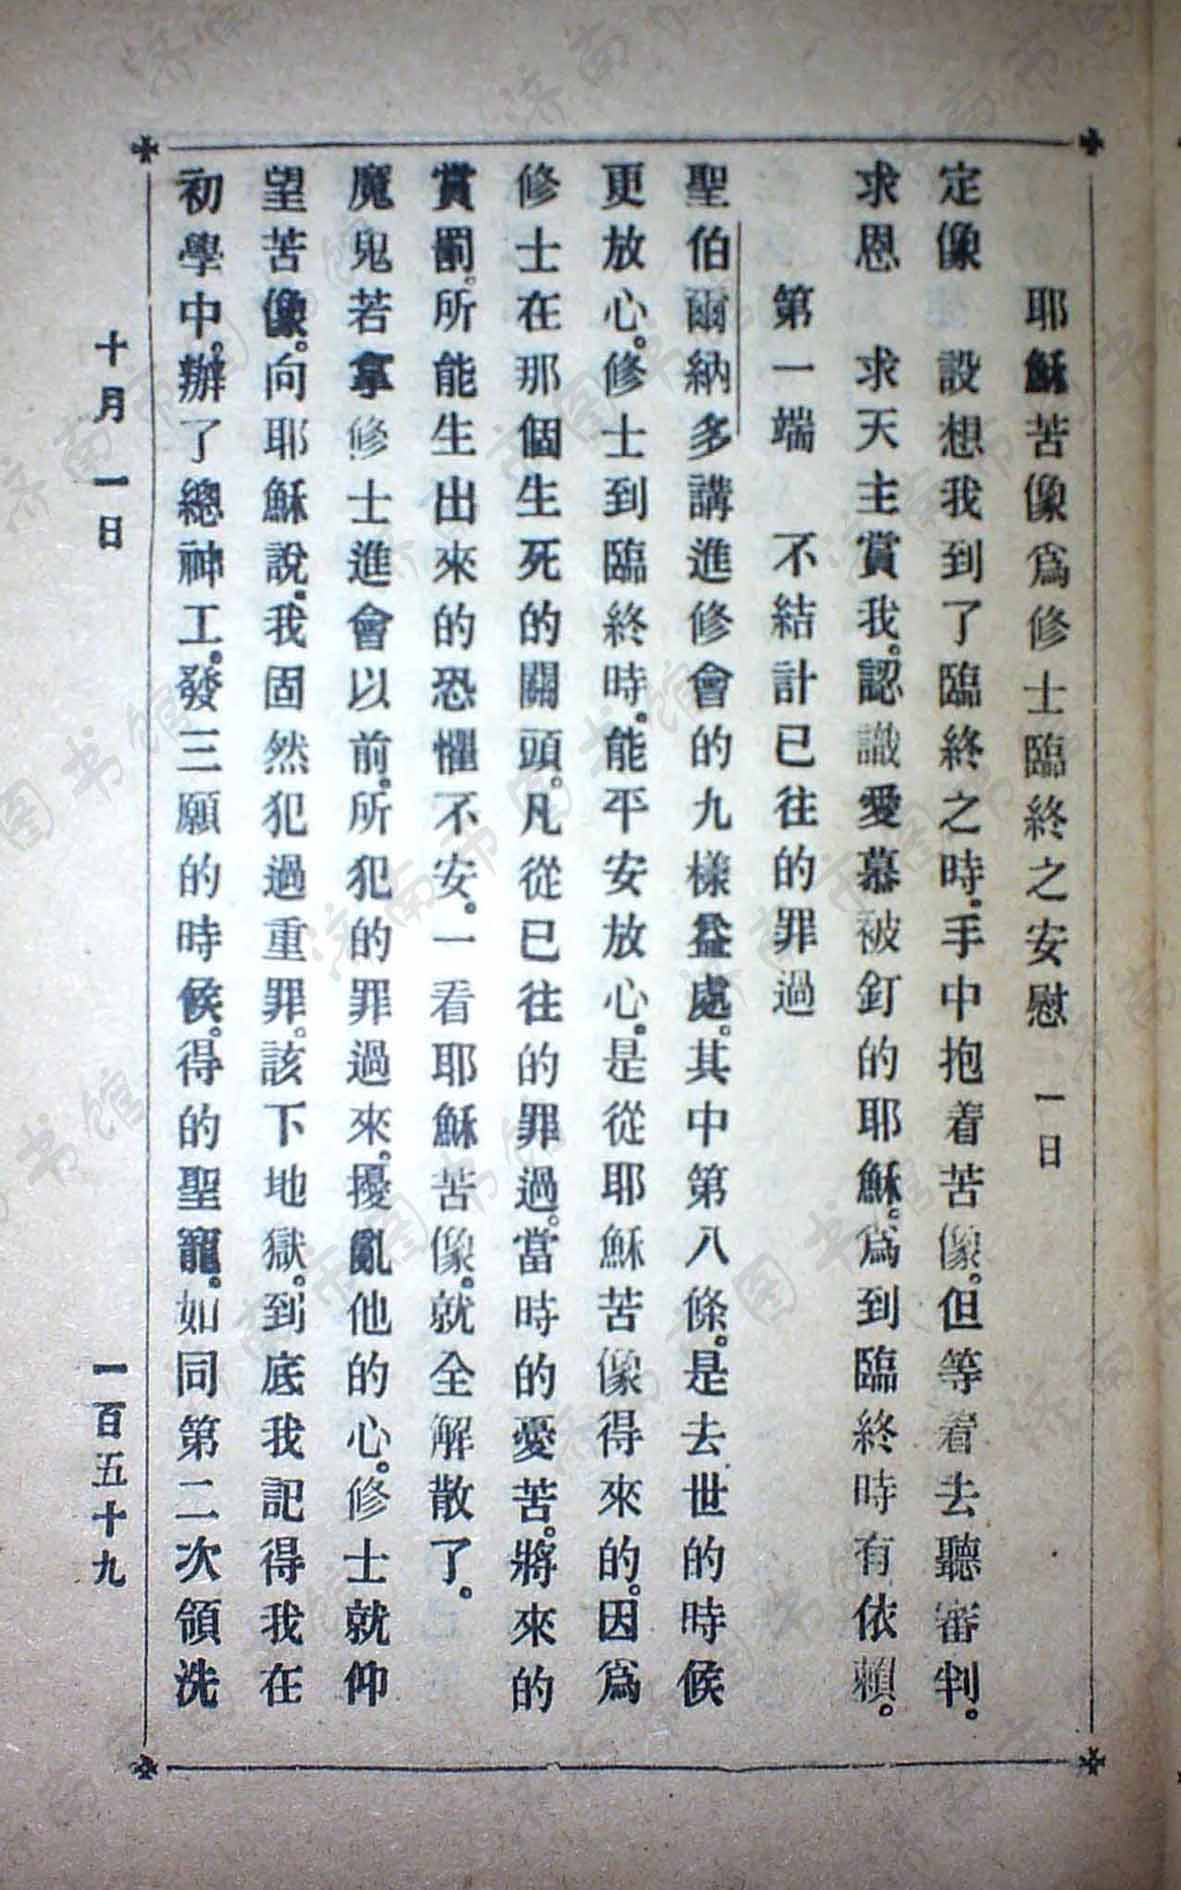 耶穌苦像爲修士臨終之安慰 一日
定像 設想我到了臨終之時。手中抱着苦像。但等着去聽審判。
求恩 求天主賞我。認識愛慕被釘的耶穌。爲到臨終時有依賴。
第一端 不結計已往的罪過
聖伯爾納多講進修會的九樣益處。其中第八條。是去世的時候
更放心。修士到臨終時。能平安放心。是從耶穌苦像得來的。因爲
修士在那個生死的關頭。凡從已往的罪過。當時的憂苦。將來的
賞罰。所能生出來的恐懼不安。一看耶穌苦像。就全解散了。
魔鬼若拿修士進會以前。所犯的罪過來。擾亂他的心。修士就仰
望苦像。向耶穌說。我固然犯過重罪。該下地獄。到底我記得我在
初學中。辦了總神工。發三願的時候。得的聖寵。如同第二次領洗
十月一日
一百五十九
济南市图书馆